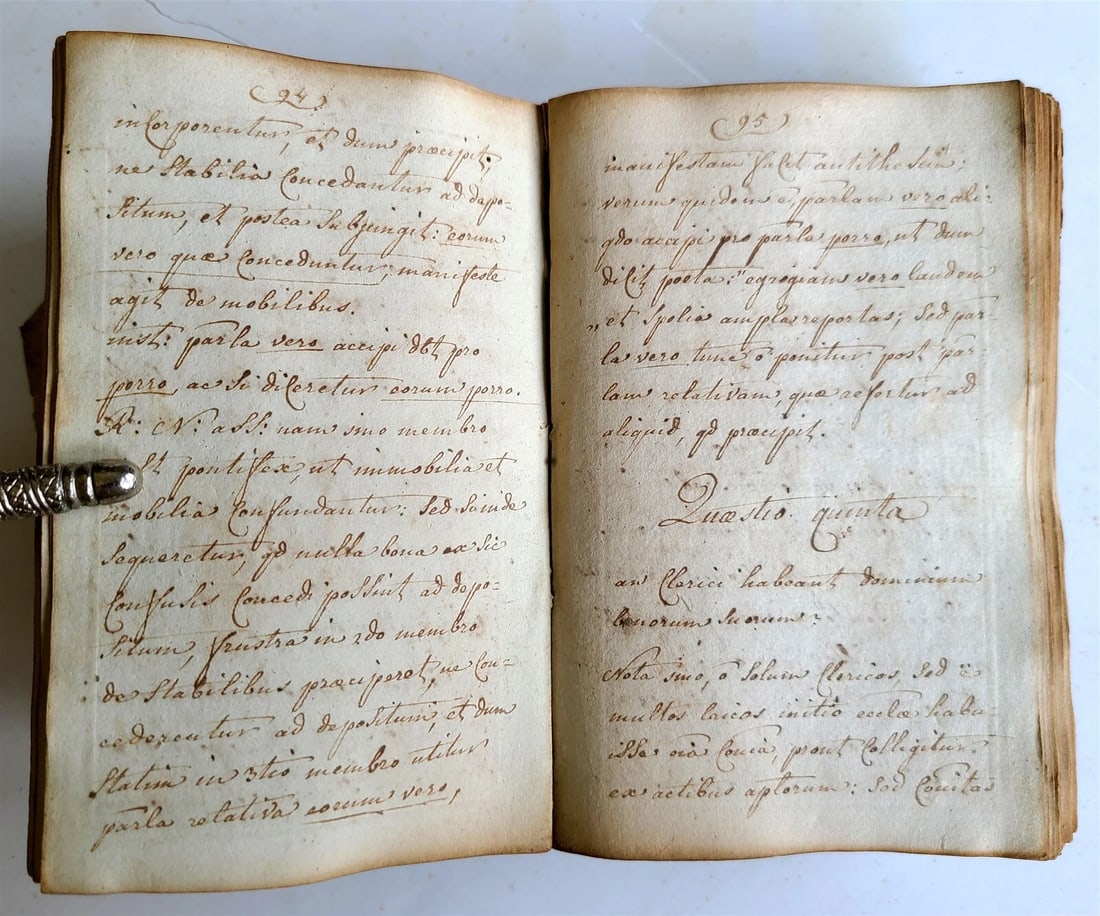 94
incorporentur, et dum præcipit,
ne Stabilia Concedantur ad depo-
situm, et postea Subjungit: eorum
vero quæ Conceduntur; manifeste
agit de mobilibus.
inst: parla vero accipi dbt pro
porro, ac Si diceretur eorum porro.
R: N: ass: nam imo membro
pontifex, ut immobilia et
mobilia Confundantur: Sed Seinde
Sequeretur, qd multa bona ex Sic
Confusis Concedi possint ad depo-
Situm, frustra in 2do membro
de Stabilibus præciperet, ne Con-
cederentur ad depositum, et dum
Statim in 3tio membro utitur
parla relativa eorum vero,
95
manifestam facit antithesin:
verum quidem ē, parlam vero ali-
qdo accipi pro parla porro, ut dum
dicit poeta: "egregiam vero laudem
„et Spolia ampla reportas; Sed par-
la vero tunc ō ponitur post par-
lam relativam quæ refertur ad
aliquid, qd præcipit.
Quæstio quinta
an Clerici habeant dominium
bonorum Suorum?
Nota imo, ō Solum Clericos, Sed ē
multos laicos initio ecclæ habu-
isse oīa Coīa, prout Colligitur
ex actibus aptorum: Sed Coūitas